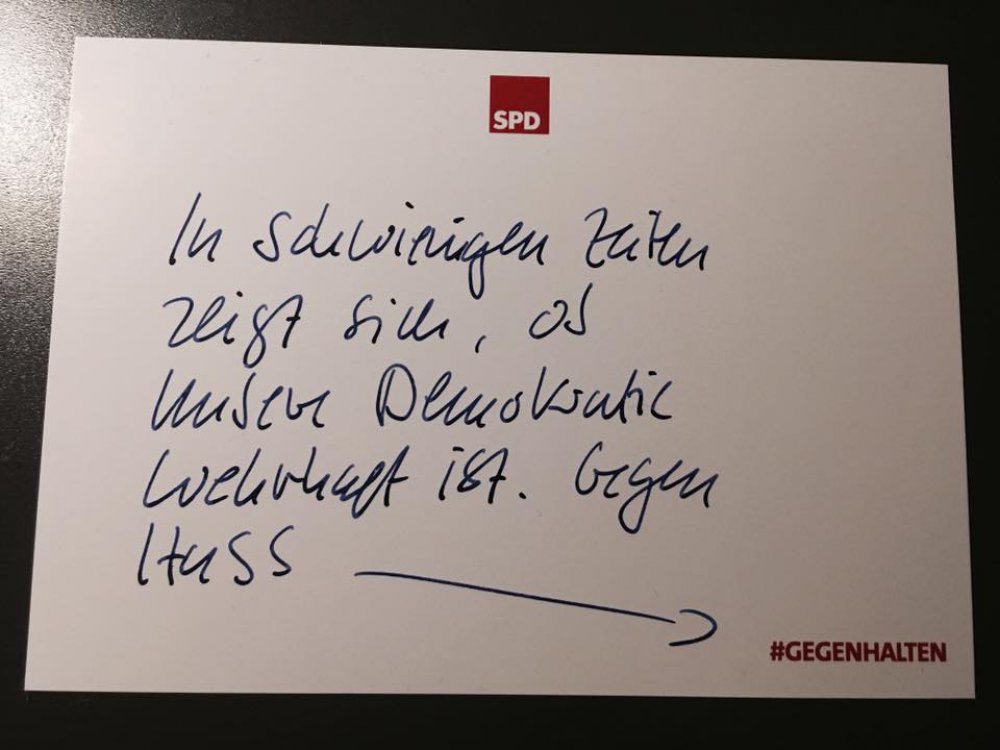 SPD
In schwierigen Zeiten
zeigt sich, ob
unsere Demokratie
wehrhaft ist. Gegen
Hass
#GEGENHALTEN